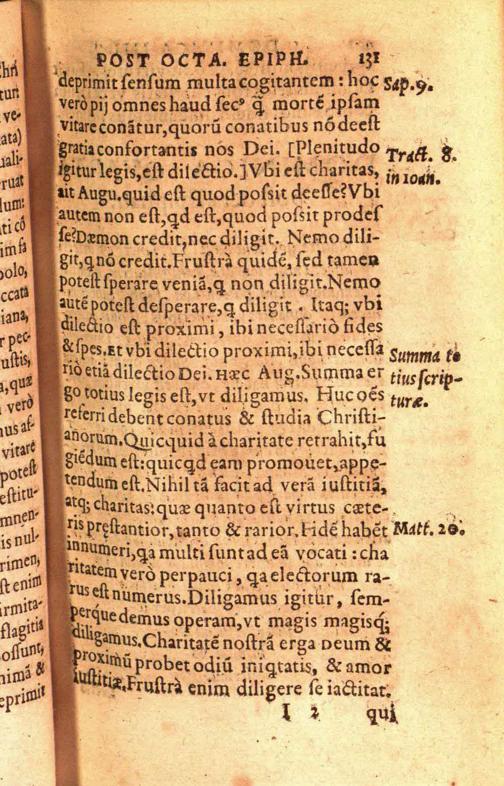 POST OCTA. EPIPH. 131
deprimit sensum multa cogitantem : hoc
verò pij omnes haud sec⁹ q̃ mortẽ ipsam
vitare conãtur, quorũ conatibus nõ deest
gratia confortantis nos Dei. [Plenitudo
igitur legis, est dilectio.] Vbi est charitas,
ait Augu. quid est quod possit deesse? Vbi
autem non est, qd est, quod possit prodes
se? Dæmon credit, nec diligit. Nemo dili-
git, q nõ credit. Frustrà quidẽ, sed tamen
potest sperare veniã, q non diligit. Nemo
autẽ potest desperare, q diligit . Itaq; vbi
dilectio est proximi, ibi necessariò fides
& spes. Et vbi dilectio proximi, ibi necessa
riò etiã dilectio Dei. Hæc Aug. Summa er
go totius legis est, vt diligamus. Huc oẽs
referri debent conatus & studia Christi-
anorum. Quicquid à charitate retrahit, fu
giẽdum est: quicqd eam promouet, appe-
tendum est. Nihil tã facit ad verã iustitiã,
atq; charitas: quæ quanto est virtus cæte-
ris pręstantior, tanto & rarior. Fidẽ habẽt
innumeri, qa multi sunt ad eã vocati : cha
ritatem verò perpauci , qa electorum ra-
rus est numerus. Diligamus igitur , sem-
perque demus operam, vt magis magisq;
diligamus. Charitatẽ nostrã erga Deum &
proximũ probet odiũ iniqtatis, & amor
iustitiæ. Frustrà enim diligere se iactitat,
I 2 qui
Sap. 9.
Tract. 8.
in ioan.
Summa to
tius scrip-
turæ.
Matt. 20.
Chri
turi
ve-
ata)
uali-
ruat
lum:
ti cõ
im sa
polo,
ccata
iana,
r pec-
iustis,
a, quæ
verò
nus af-
vitare
potest
estitu-
mnen-
is nul-
rimen,
st enim
irmita-
flagitia
ossunt,
nimã &
eprimit